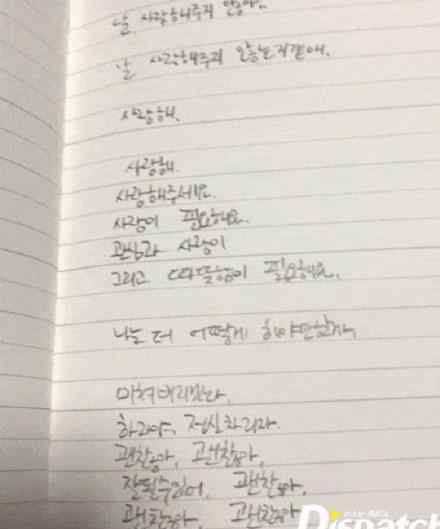 날 사랑해주지 않아.
날 사랑해주지
사랑해.
사랑해.
사랑해주세요.
사랑이 필요해요.
관심과 사랑이
그리고 따뜻함이 필요해요.
나는 더 어떻게 해야만할까.
미쳐버리겠다.
하라야, 정신차리자.
괜찮아, 괜찮아,
잘될수있어, 괜찮아,
괜찮아, 괜찮아,
Dispatch